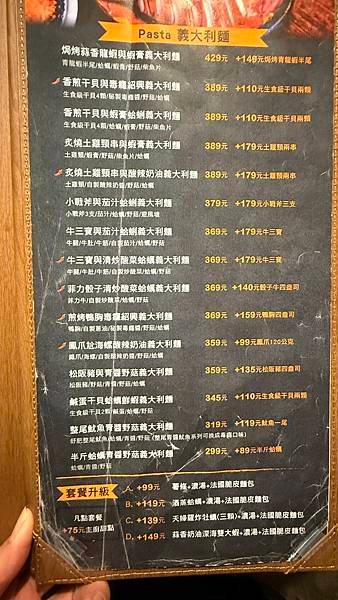 Pasta 義大利麵
焗烤蒜香龍蝦與蝦膏義大利麵 429元 +149元焗烤青龍蝦半尾
青龍蝦半尾/蛤蠣/蝦膏/野菇/柴魚片
香煎干貝與毒龍紹興義大利麵 389元 +110元生食級干貝兩顆
生食級干貝4顆/秘製毒龍醬/野菇/蛤蠣
香煎干貝與蝦膏蛤蜊義大利麵 389元 +110元生食級干貝兩顆
生食級干貝4顆/蛤蠣/蝦膏/野菇/柴魚片
炙燒土雞頸串與蝦膏義大利麵 389元 +179元土雞頸兩串
土雞頸/蝦膏/柴魚片/野菇/蛤蠣
炙燒土雞頸串與酸辣奶油義大利麵 389元 +179元土雞頸兩串
土雞頸/自製酸辣奶醬/野菇/蛤蠣
小戰斧與茄汁蛤蜊義大利麵 379元 +179元小戰斧三支
小戰斧3支/茄汁/蛤蠣/野菇/避風塘
牛三寶與茄汁蛤蜊義大利麵 369元 +179元牛三寶
牛腱/牛肚/牛筋/自製茄汁/蛤蠣/野菇
牛三寶與清炒酸菜蛤蠣義大利麵 369元 +179元牛三寶
牛腱/牛肚/牛筋/自製炒酸菜/蛤蠣/野菇
菲力骰子清炒酸菜蛤蠣義大利麵 369元 +140元骰子牛四盎司
菲力牛/自製炒酸菜/蛤蠣/野菇
煎烤鴨胸毒龍紹興義大利麵 369元 +159元鴨胸四盎司
鴨胸/自製蔥油/秘製毒龍醬/野菇/蛤蠣
鳳爪尬海螺酸辣奶油義大利麵 359元 +99元鳳爪120公克
鳳爪/海螺/自製酸辣奶醬/野菇/蛤蠣
松阪豬與青醬野菇義大利麵 359元 +135元松阪豬四盎司
松阪豬/野菇/青醬/野菇/蛤蠣
鹹蛋干貝蛤蠣鮮蝦義大利麵 345元 +110元生食級干貝兩顆
生食級干貝2顆/鹹蛋/蛤蠣/野菇
整尾魷魚青醬野菇義大利麵 319元 +119元魷魚一尾
舒肥整尾魷魚/蛤蠣/青醬/野菇 (整尾青醬魷魚系列可換成毒龍口味)
半斤蛤蠣青醬野菇義大利麵 299元 +89元半斤蛤蠣
蛤蠣/青醬/野菇
套餐升級 A. +99元 薯條+濃湯+法國脆皮麵包
凡點套餐 B. +119元 酒蒸蛤蠣+濃湯+法國脆皮麵包
+75元主廚甜點 C. +139元 天婦羅炸牡蠣(三顆)+濃湯+法國脆皮麵包
D. +149元 蒜香奶油深海雙大蝦+濃湯+法國脆皮麵包